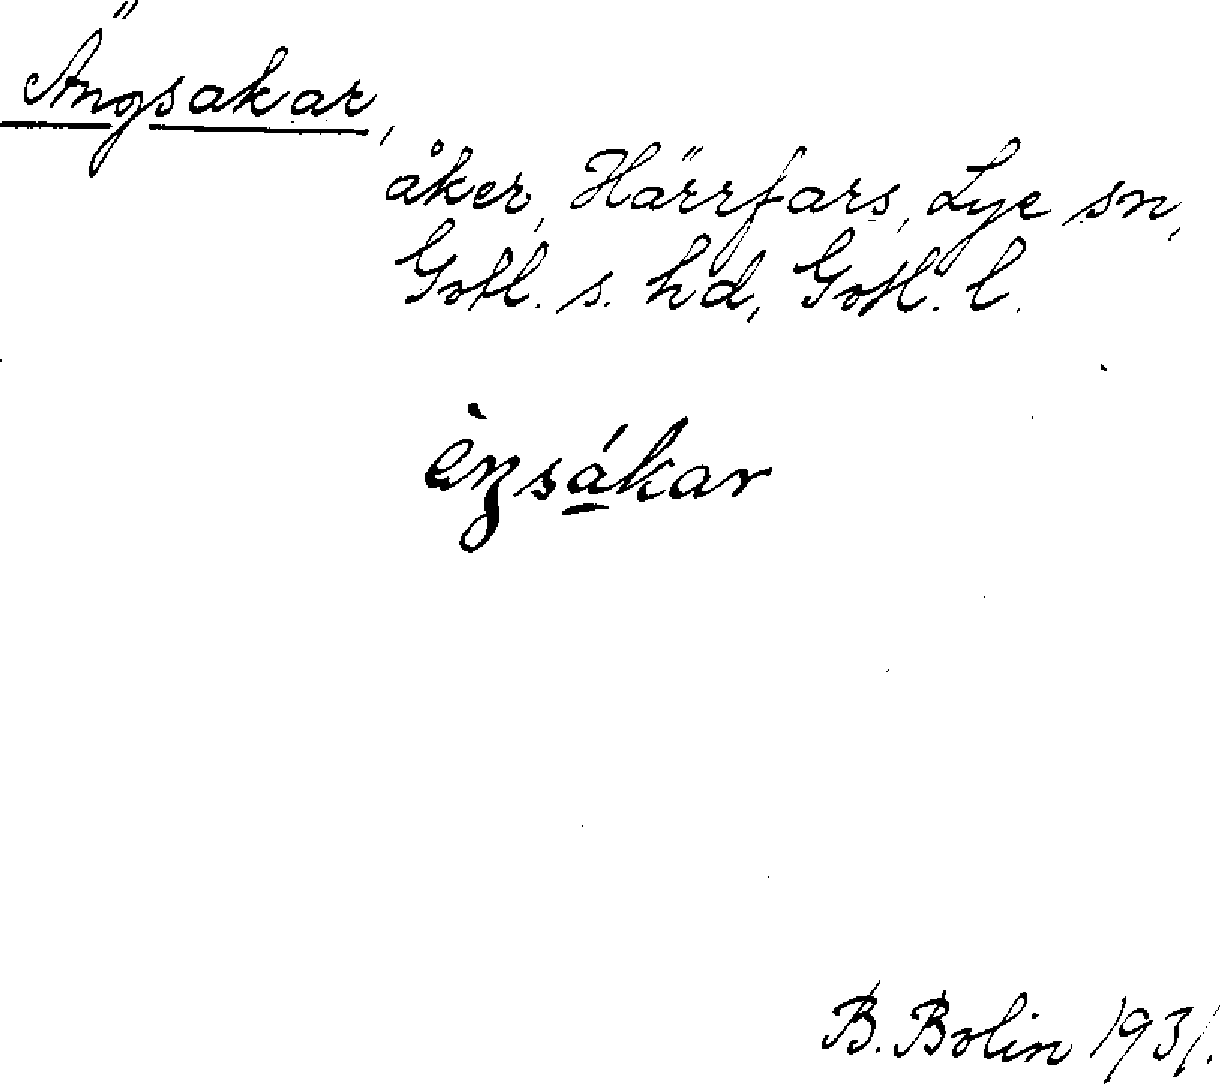 Ängsakar,
åker, Härrfars, Lye sn,
Gotl. s. hd, Gotl. l.
B. Bolin 1931.